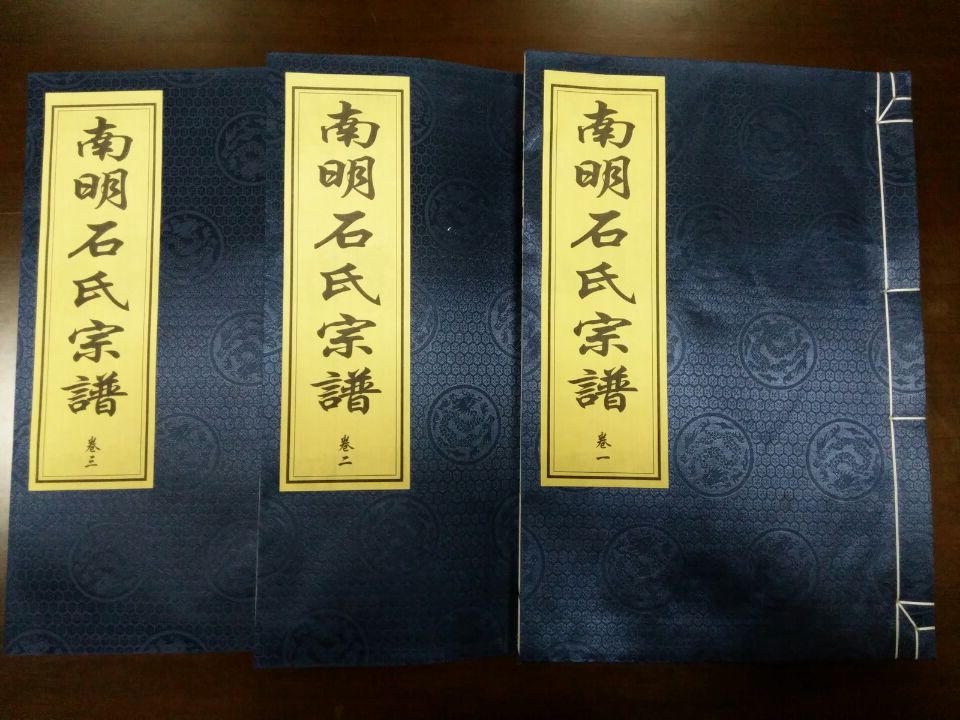 南明石氏宗譜
卷一
南明石氏宗譜
卷二
南明石氏宗譜
卷三